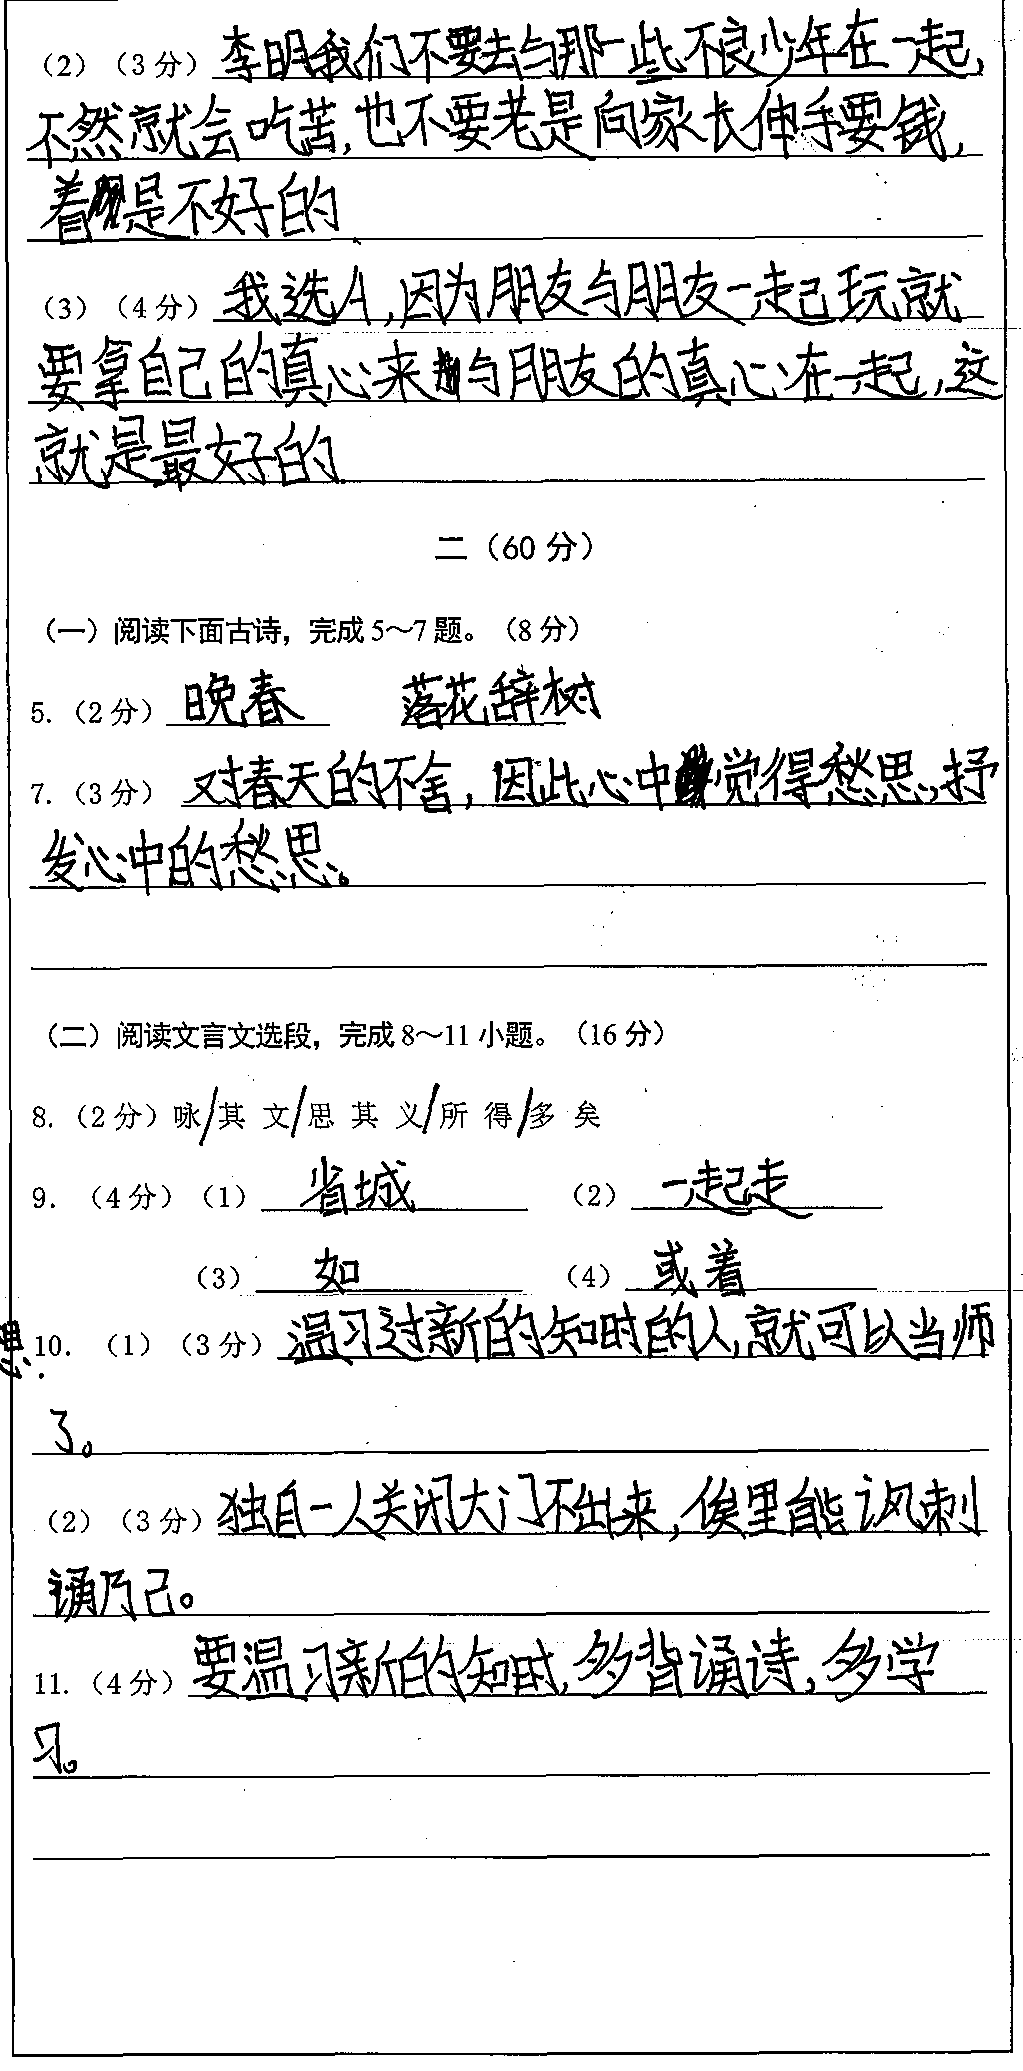 （2）（3分）李明我们不要去与那一些不良少年在一起,
不然就会吃苦,也不要老是向家长伸手要钱,
着是不好的
（3）（4分）我选A,因为朋友与朋友一起玩就
要拿自己的真心来与朋友的真心在一起,这
就是最好的.
二（60分）
（一）阅读下面古诗，完成5～7题。（8分）
5.（2分）晚春 落花辞树
7.（3分）对春天的不舍，因此心中觉得愁思,抒
发心中的愁思。
（二）阅读文言文选段，完成8～11小题。（16分）
8.（2分）咏/其 文/思 其 义/所 得/多 矣
9.（4分）（1）省城 （2）一起走
（3）如 （4）或着
思.
10.（1）（3分）温习过新的知时的人,就可以当师
了。
（2）（3分）独自一人关闭大门不出来,俟里能讽刺
诵乃己。
11.（4分）要温习新的知时,多背诵诗,多学
习。